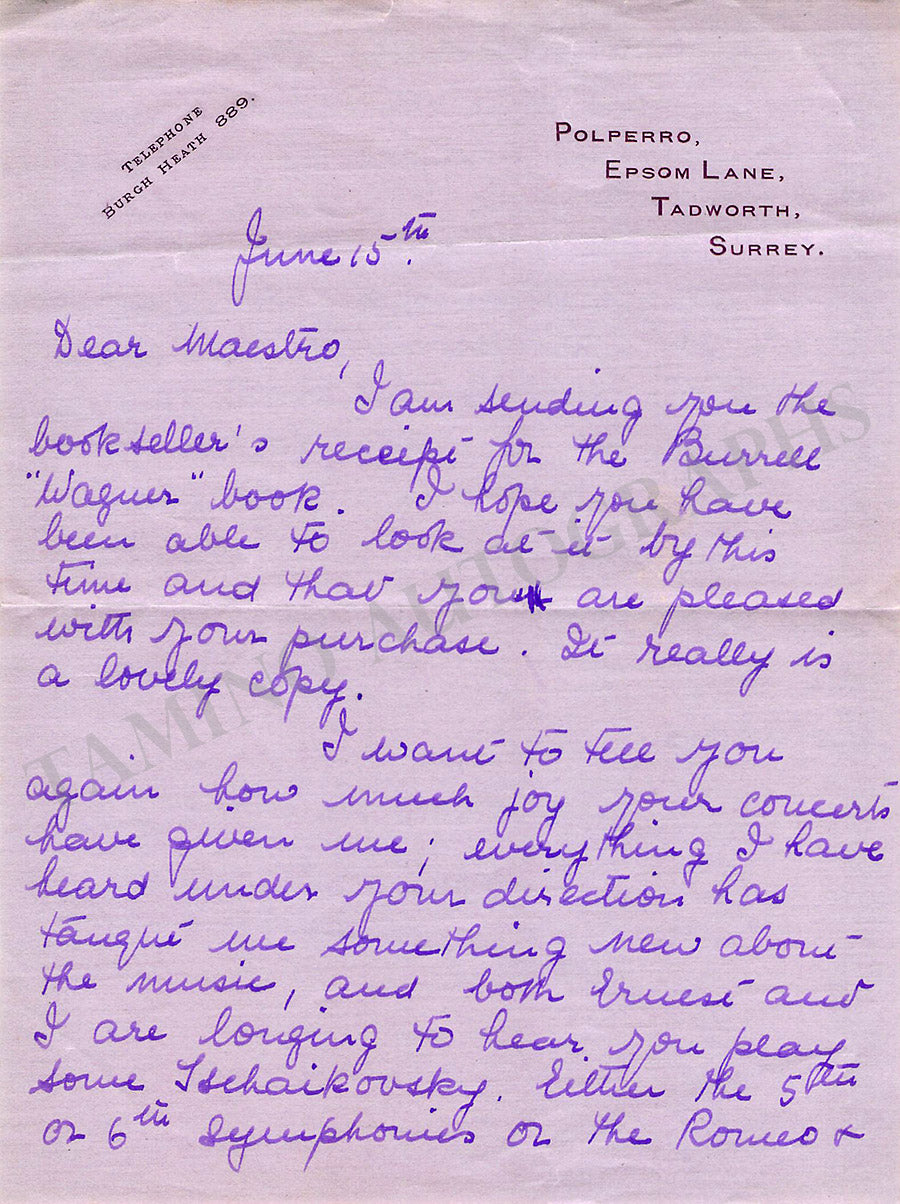 TELEPHONE
BURGH HEATH 889.
POLPERRO,
EPSOM LANE,
TADWORTH,
SURREY.
June 15th.
Dear Maestro,
I am sending you the
bookseller's receipt for the Burrell
"Wagner" book. I hope you have
been able to look at it by this
time and that you are pleased
with your purchase. It really is
a lovely copy.
I want to tell you
again how much joy your concerts
have given me; everything I have
heard under your direction has
taught me something new about
the music, and both Ernest and
I are longing to hear you play
some Tschaikovsky. Either the 5th
or 6th Symphonies or the Romeo &
TAMINO AUTOGRAPHS